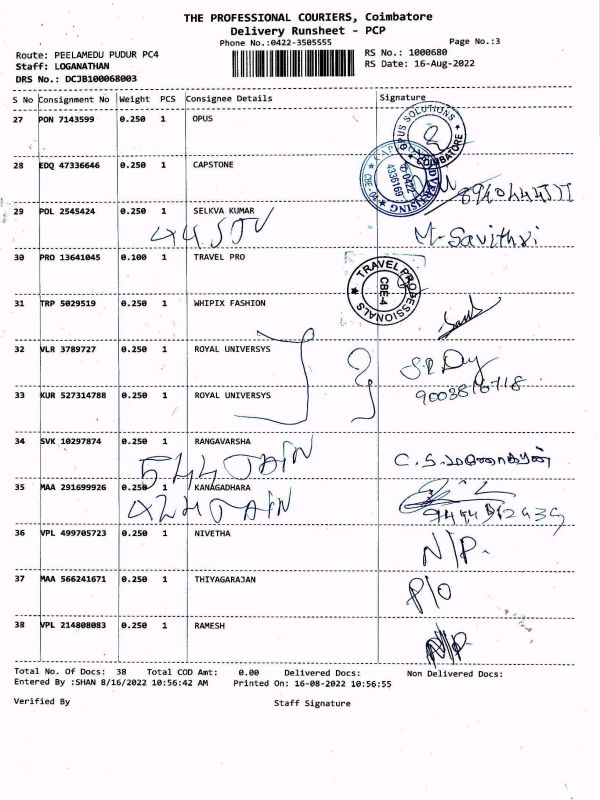 THE PROFESSIONAL COURIERS, Coimbatore
Delivery Runsheet - PCP
Phone No.:0422-3505555
Page No.:3
Route: PEELAMEDU PUDUR PC4
RS No.: 1000680
Staff: LOGANATHAN
RS Date: 16-Aug-2022
DRS No.: DCJB100068003
S No Consignment No Weight PCS Consignee Details Signature
27 PON 7143599 0.250 1 OPUS
OPUS SOLUTIONS ★ COIMBATORE ★
28 EDQ 47336646 0.250 1 CAPSTONE
ADVERTISING ★ CBE-
0422
4336169
29 POL 2545424 0.250 1 SELKVA KUMAR
M. Savithri
30 PRO 13641045 0.100 1 TRAVEL PRO
TRAVEL PROFESSIONALS ★
CBE-4
31 TRP 5029519 0.250 1 WHIPIX FASHION
32 VLR 3789727 0.250 1 ROYAL UNIVERSYS
33 KUR 527314788 0.250 1 ROYAL UNIVERSYS
34 SVK 10297874 0.250 1 RANGAVARSHA
544 JAIN
35 MAA 291699926 0.250 1 KANAGADHARA
424 JAIN
36 VPL 499705723 0.250 1 NIVETHA N/P.
37 MAA 566241671 0.250 1 THIYAGARAJAN P/O
38 VPL 214808083 0.250 1 RAMESH
Total No. Of Docs: 38 Total COD Amt: 0.00 Delivered Docs: Non Delivered Docs:
Entered By :SHAN 8/16/2022 10:56:42 AM Printed On: 16-08-2022 10:56:55
Verified By Staff Signature